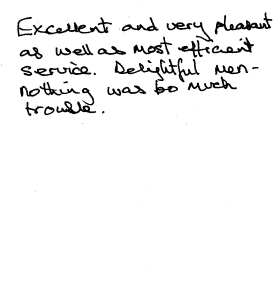 Excellent and very pleasant
as well as most efficient
service. Delightful men-
nothing was too much
trouble.